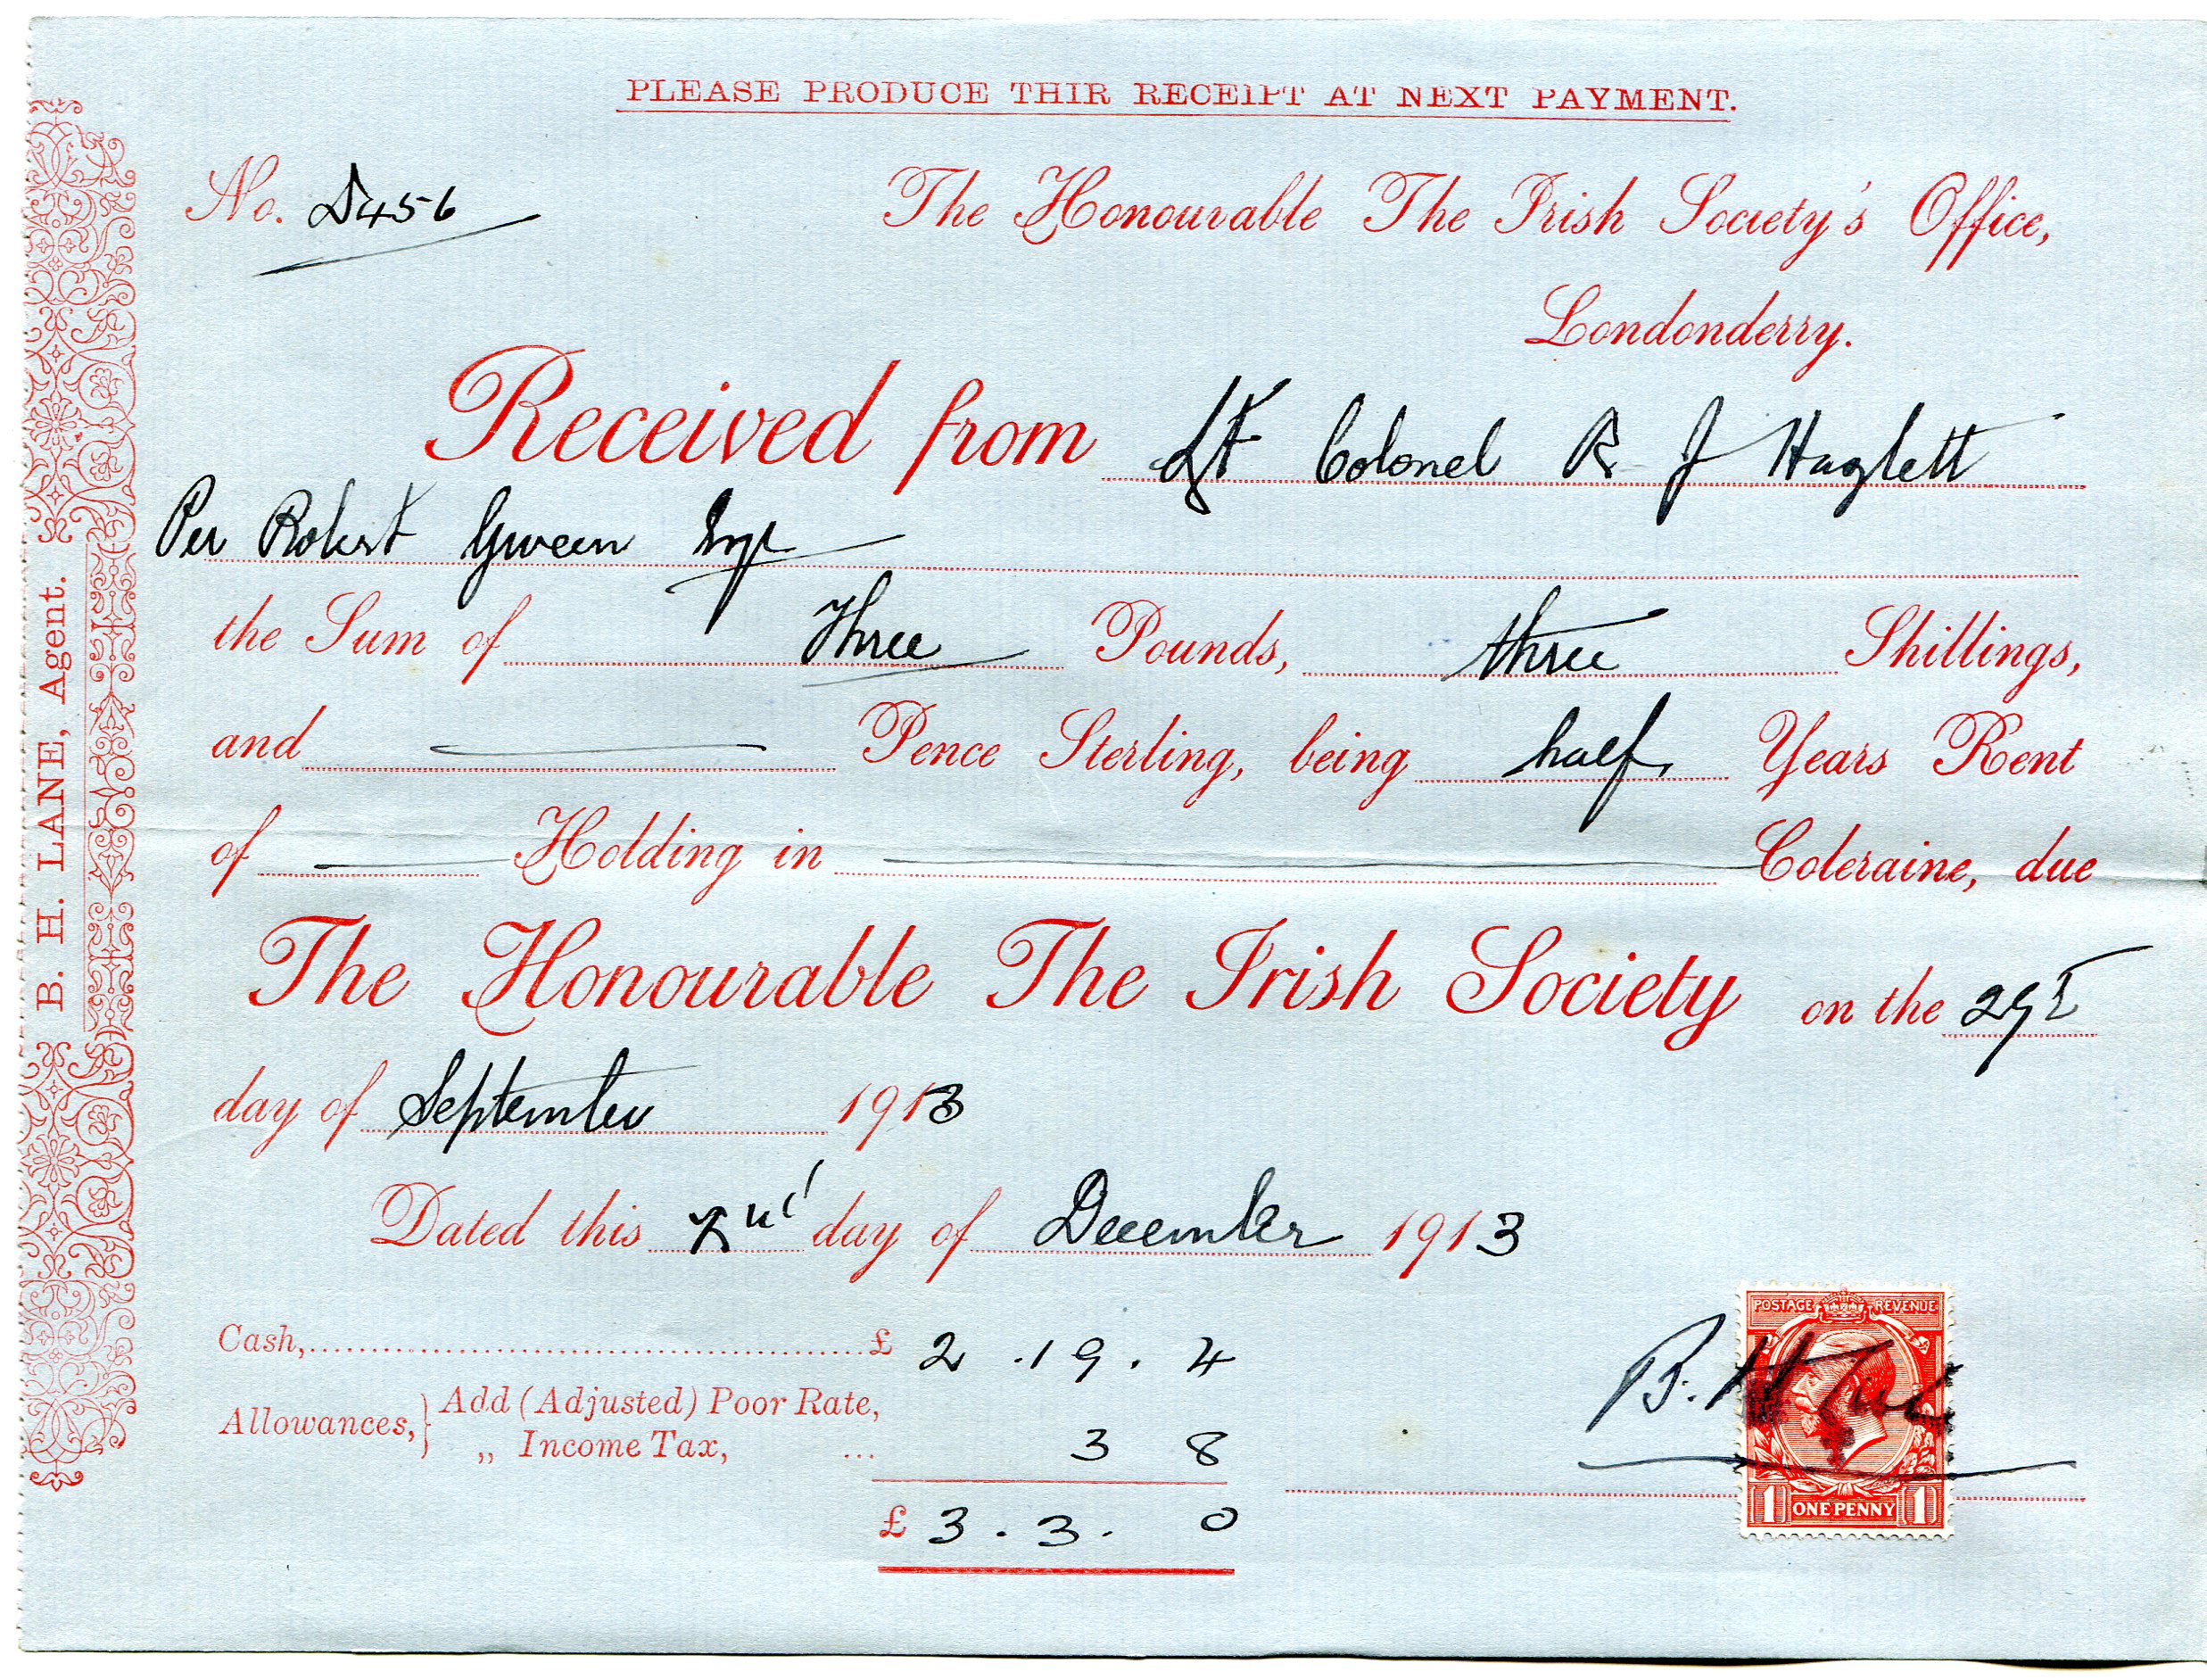 PLEASE PRODUCE THIR RECEIPT AT NEXT PAYMENT.
No. D456
The Honourable The Irish Society's Office,
Londonderry.
Received from Lt Colonel R J Hazlett
Per Robert Esqr
the Sum of Three Pounds, three Shillings,
and Pence Sterling, being half Years Rent
of Holding in Coleraine, due
The Honourable The Irish Society on the 29th
day of September 1913
Dated this day of December 1913
Cash, £ 2 . 19 . 4
Allowances, } Add (Adjusted) Poor Rate,
„ Income Tax, ... 3 8
£ 3 . 3 . 0
B. H. Lane
POSTAGE REVENUE
1 ONE PENNY 1
B. H. LANE, Agent.